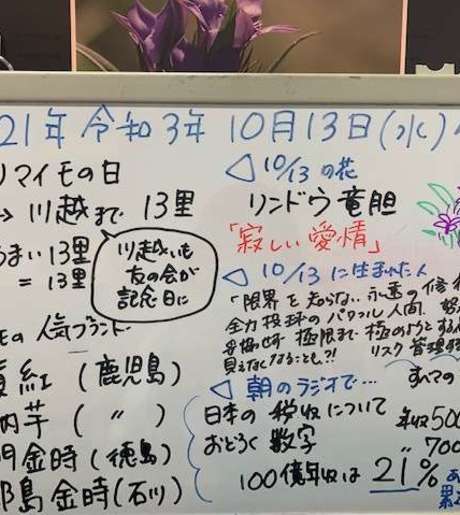 21年 令和3年 10月13日(水)
マイモの日
→ 川越まで 13里
うまい 13里
= 13里
川越いも
友の会が
記念日に
モの 人気ブランド
紅 (鹿児島)
芋 ( 〃 )
門金時(徳島)
郎島金時(石川)
◁ 10/13 の花
リンドウ 竜胆
「寂しい愛情」
◁ 10/13 に生まれた人
「限界を知らない 永遠の修
全力投球のパワフル人間.
妥協せず 極限まで 極めようとする
見えなくなることも?!
リスク管理
◁ 朝のラジオで…
日本の税収について
おどろく数字
100億年収は 21%
すべての
年収500
〃 700